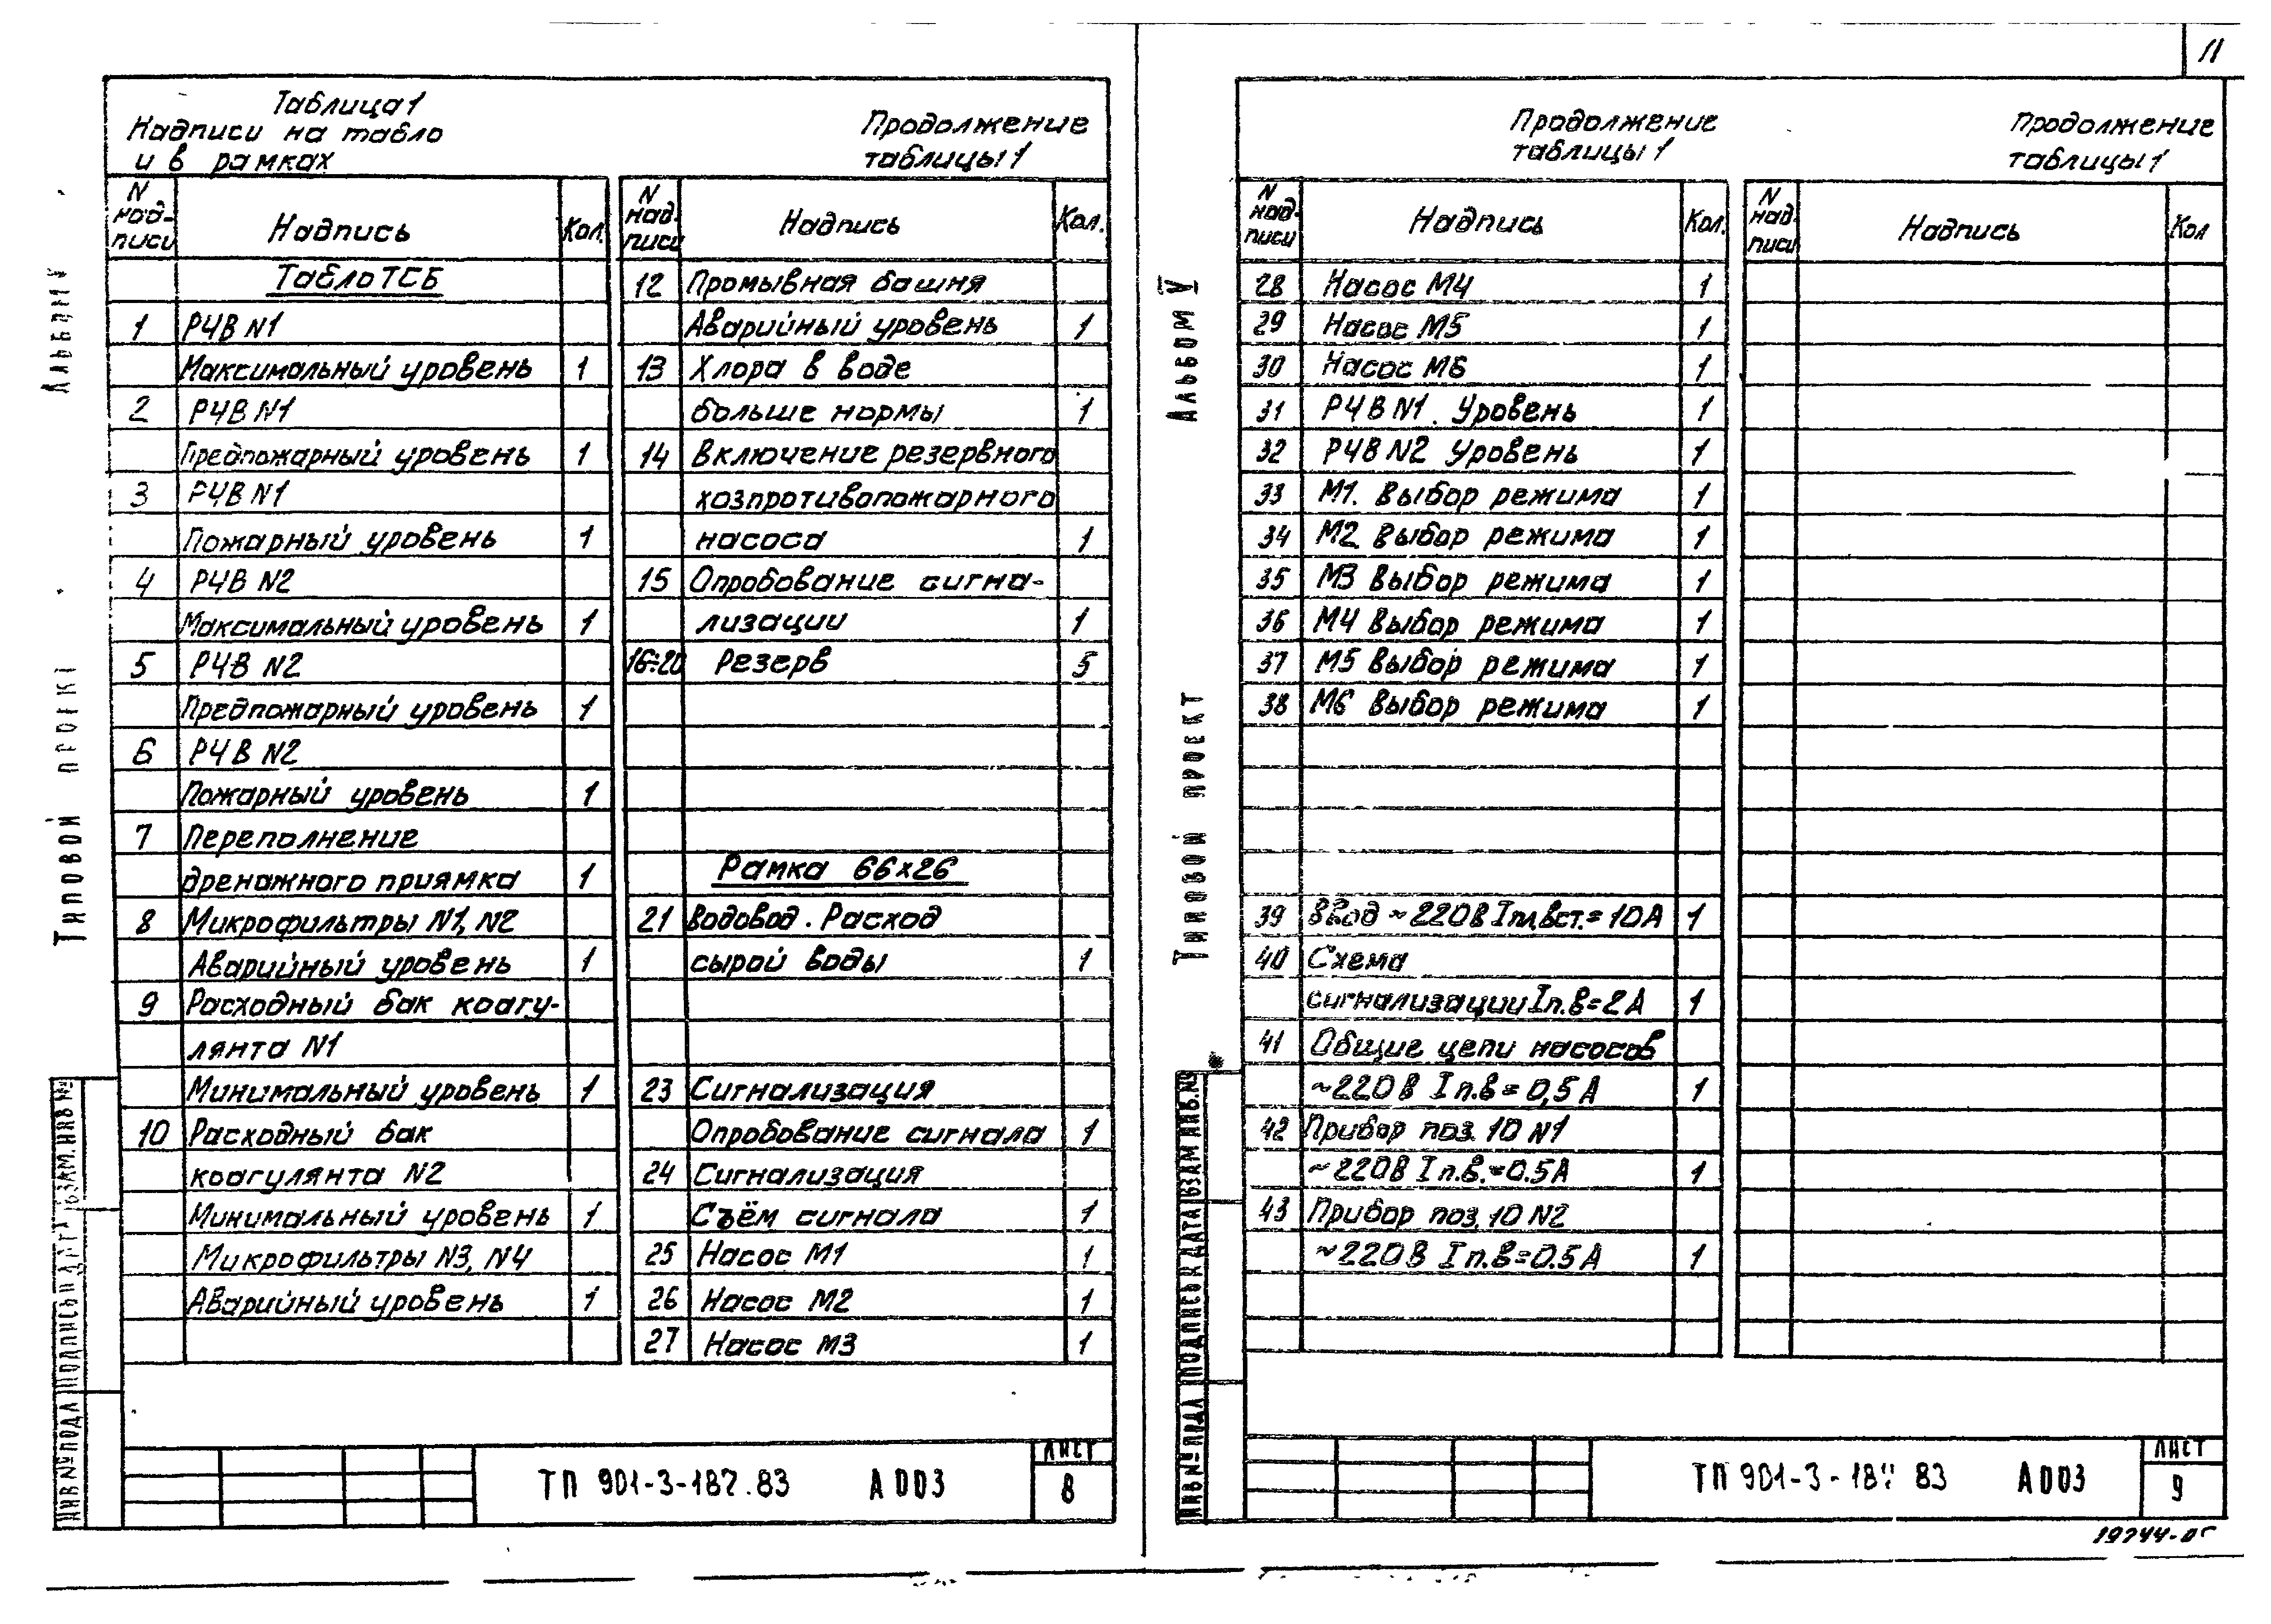 11
Таблица 1
Надписи на табло
и в рамках
N надписи Надпись Кол.
Табло ТСБ
1 РЧВ N1
Максимальный уровень 1
2 РЧВ N1
Предпожарный уровень 1
3 РЧВ N1
Пожарный уровень 1
4 РЧВ N2
Максимальный уровень 1
5 РЧВ N2
Предпожарный уровень 1
6 РЧВ N2
Пожарный уровень 1
7 Переполнение
дренажного приямка 1
8 Микрофильтры N1, N2
Аварийный уровень 1
9 Расходный бак коагу-
лянта N1
Минимальный уровень 1
10 Расходный бак
коагулянта N2
Минимальный уровень 1
Микрофильтры N3, N4
Аварийный уровень 1
Продолжение
таблицы 1
N над. писи Надпись Кол.
12 Промывная башня
Аварийный уровень 1
13 Хлора в воде
больше нормы 1
14 Включение резервного
хозпротивопожарного
насоса 1
15 Опробование сигна-
лизации 1
16÷20 Резерв 5
Рамка 66х26
21 Водовод. Расход
сырой воды 1
23 Сигнализация
Опробование сигнала 1
24 Сигнализация
Съём сигнала 1
25 Насос М1 1
26 Насос М2 1
27 Насос М3 1
ТП 901-3-187.83 А003
ЛИСТ
8
Продолжение
таблицы 1
N над- писи Надпись Кол.
28 Насос М4 1
29 Насос М5 1
30 Насос М6 1
31 РЧВ N1. Уровень 1
32 РЧВ N2 Уровень 1
33 М1. Выбор режима 1
34 М2 Выбор режима 1
35 М3 Выбор режима 1
36 М4 Выбор режима 1
37 М5 Выбор режима 1
38 М6 Выбор режима 1
39 Ввод ~220В Iпл.вст.=10А 1
40 Схема
сигнализации Iп.в=2А 1
41 Общие цепи насосов
~220В Iп.в=0,5А 1
42 Прибор поз. 10 N1
~220В Iп.в.=0.5А 1
43 Прибор поз. 10 N2
~220В Iп.в=0.5А 1
Продолжение
таблицы 1
N над. писи Надпись Кол
ТП 901-3-18 83 А003
ЛИСТ
9
Альбом V
Типовой проект
ИНВ № ПОДЛ ПОДПИСЬ И ДАТА ВЗАМ. ИНВ №
Альбом V
Типовой проект
ИНВ № ПОДЛ ПОДПИСЬ И ДАТА ВЗАМ ИНВ. №